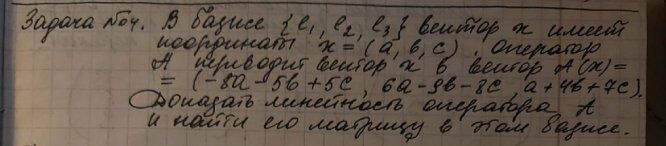 Задача №04. В базисе {e₁, e₂, e₃} вектор x имеет
координаты x = (a, b, c). Оператор
A приводит вектор x в вектор A(x)=
= (-8a - 5b + 5c, 6a - 9b - 8c, a + 4b + 7c).
Доказать линейность оператора A
и найти его матрицу в этом базисе.